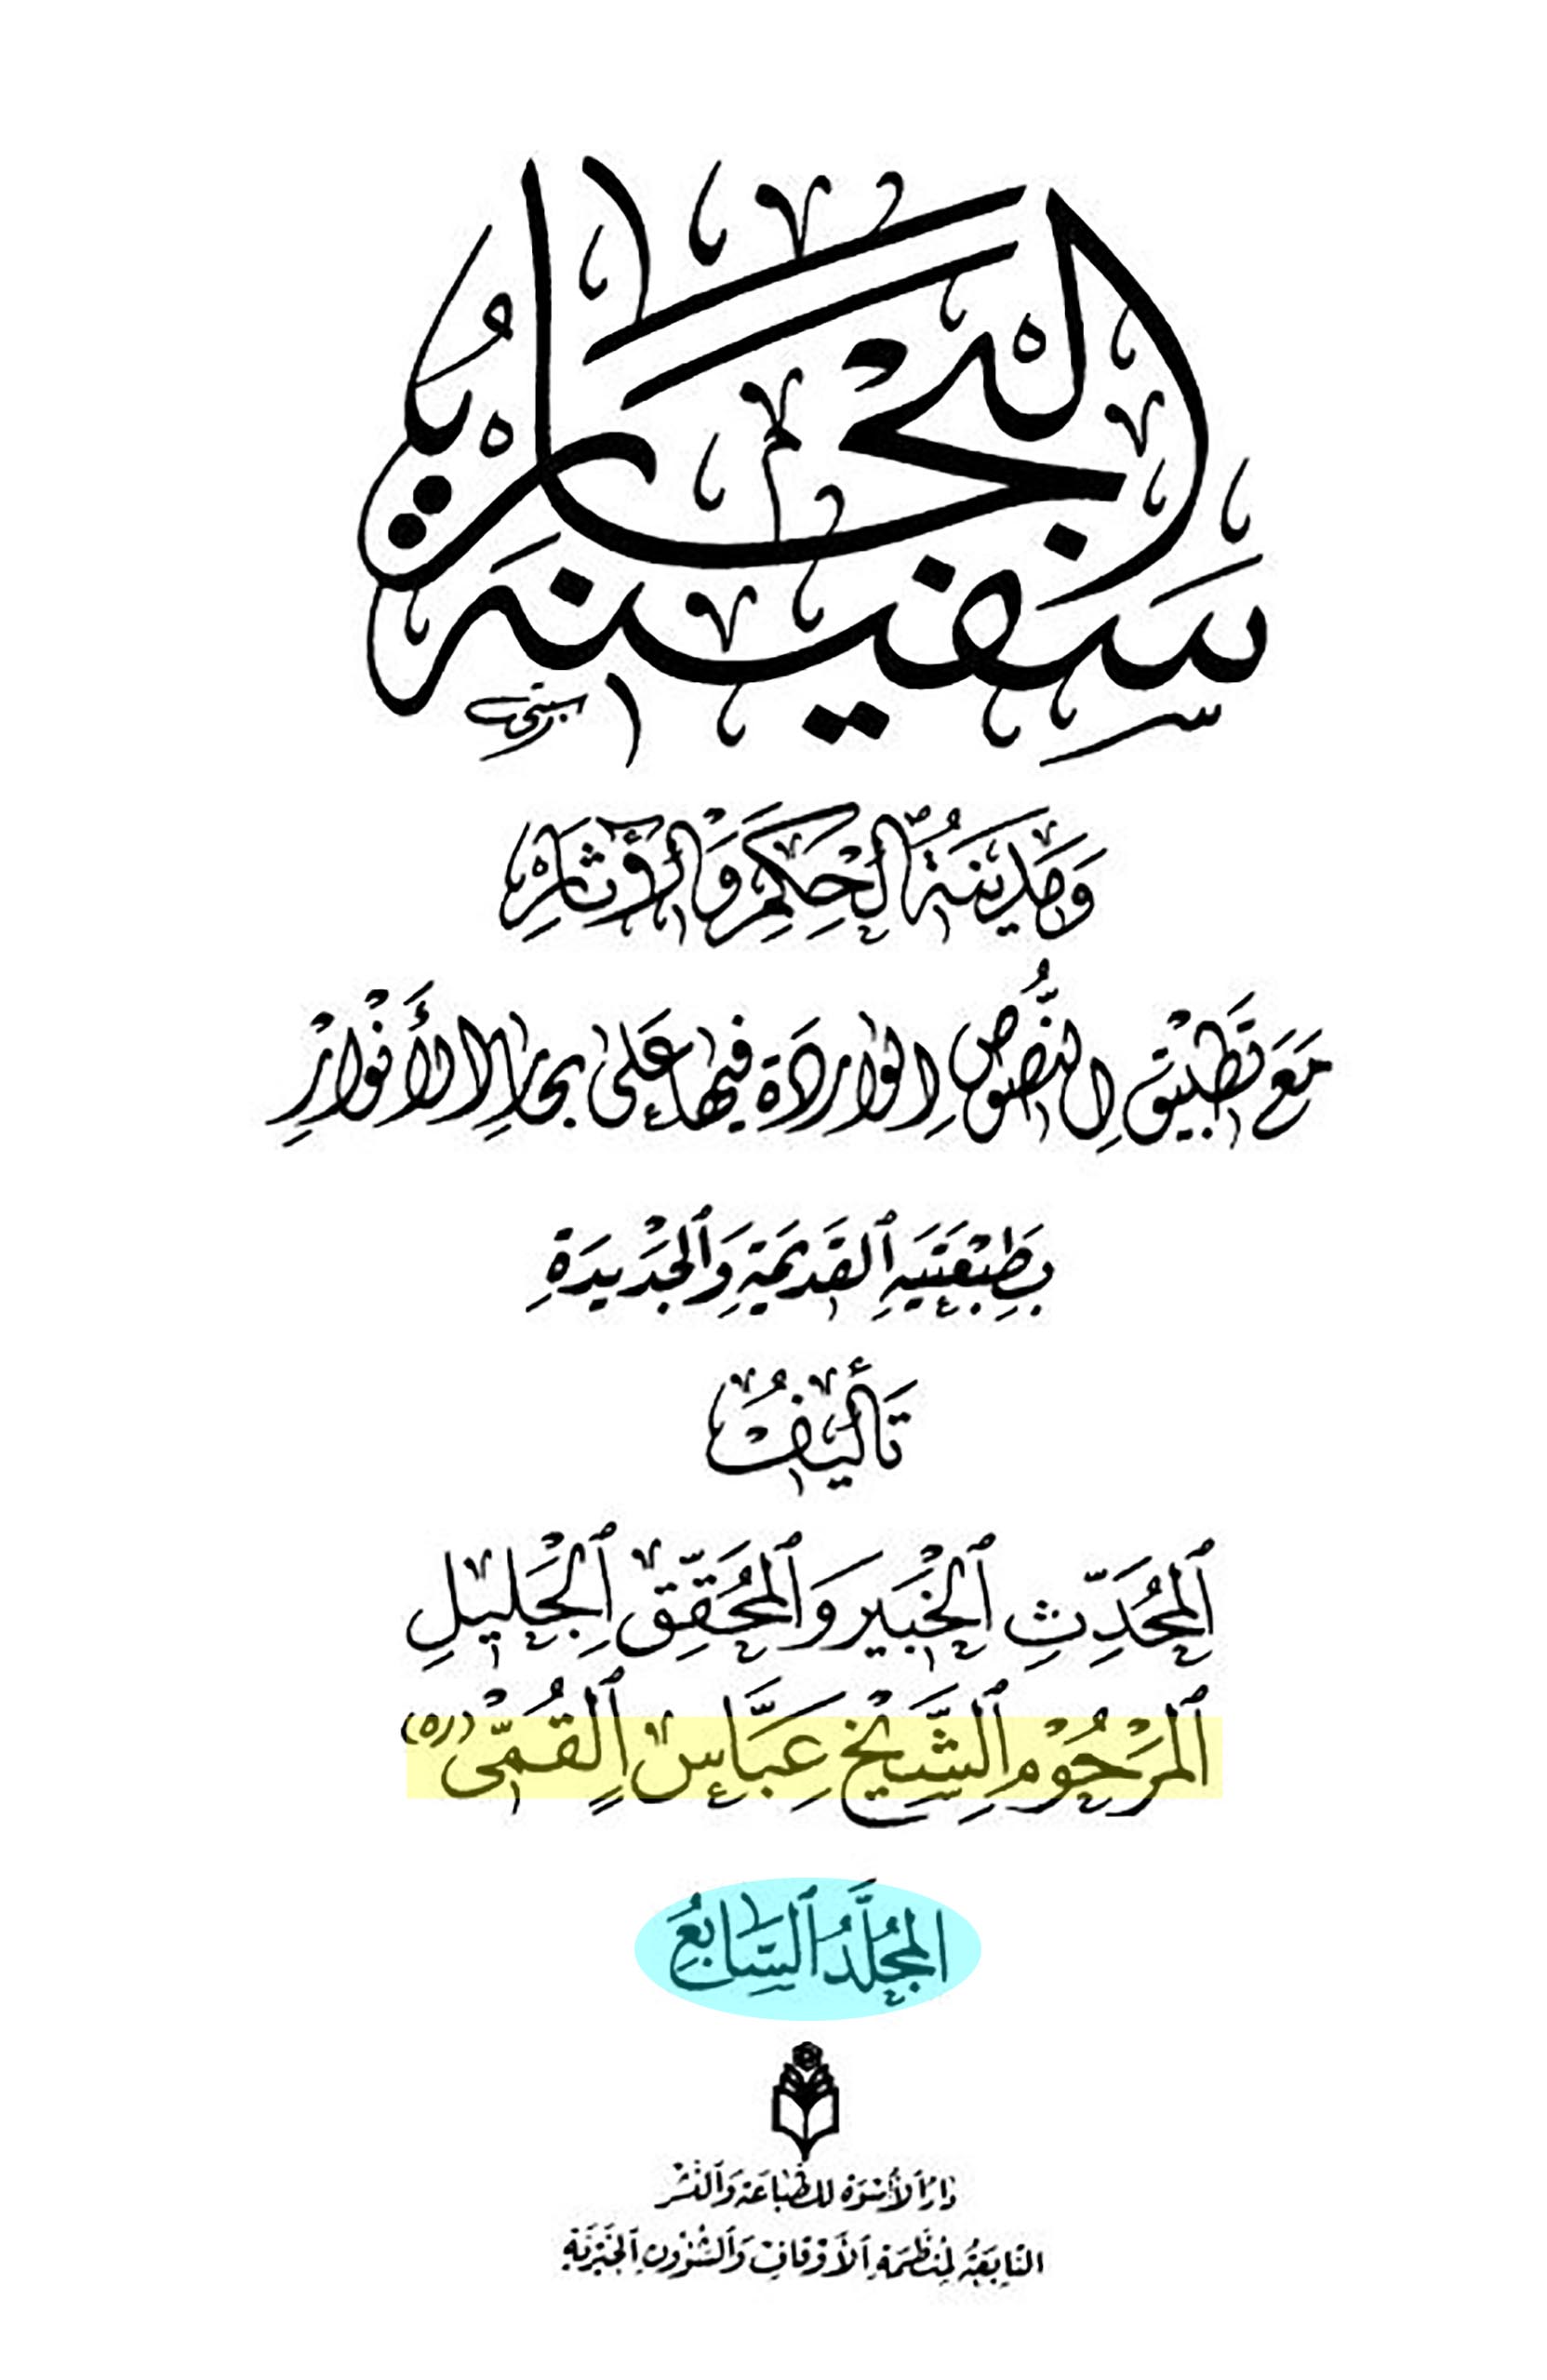 سفينة البحار
وَمَدينَةُ الحِكَمِ وَالآثارِ
مَعَ تَطبيقِ النُّصُوصِ الوارِدَةِ فيها عَلى بِحارِ الأَنْوارِ
بِطَبْعَتَيهِ القَديمَةِ وَالجَديدَةِ
تَأليفُ
المُحَدِّثِ الخَبيرِ وَالمُحَقِّقِ الجَليلِ
المَرْحُوْمِ الشَّيْخِ عَبَّاسٍ القُمّى (ره)
المُجَلَّدُ السَّابِعُ
دارُ الأُسْوَةِ لِلطِّباعَةِ وَالنَّشْرِ
التابِعَةُ لِمُنَظَّمَةِ الأَوْقافِ وَالشُّؤُونِ الخَيْرِيَّةِ